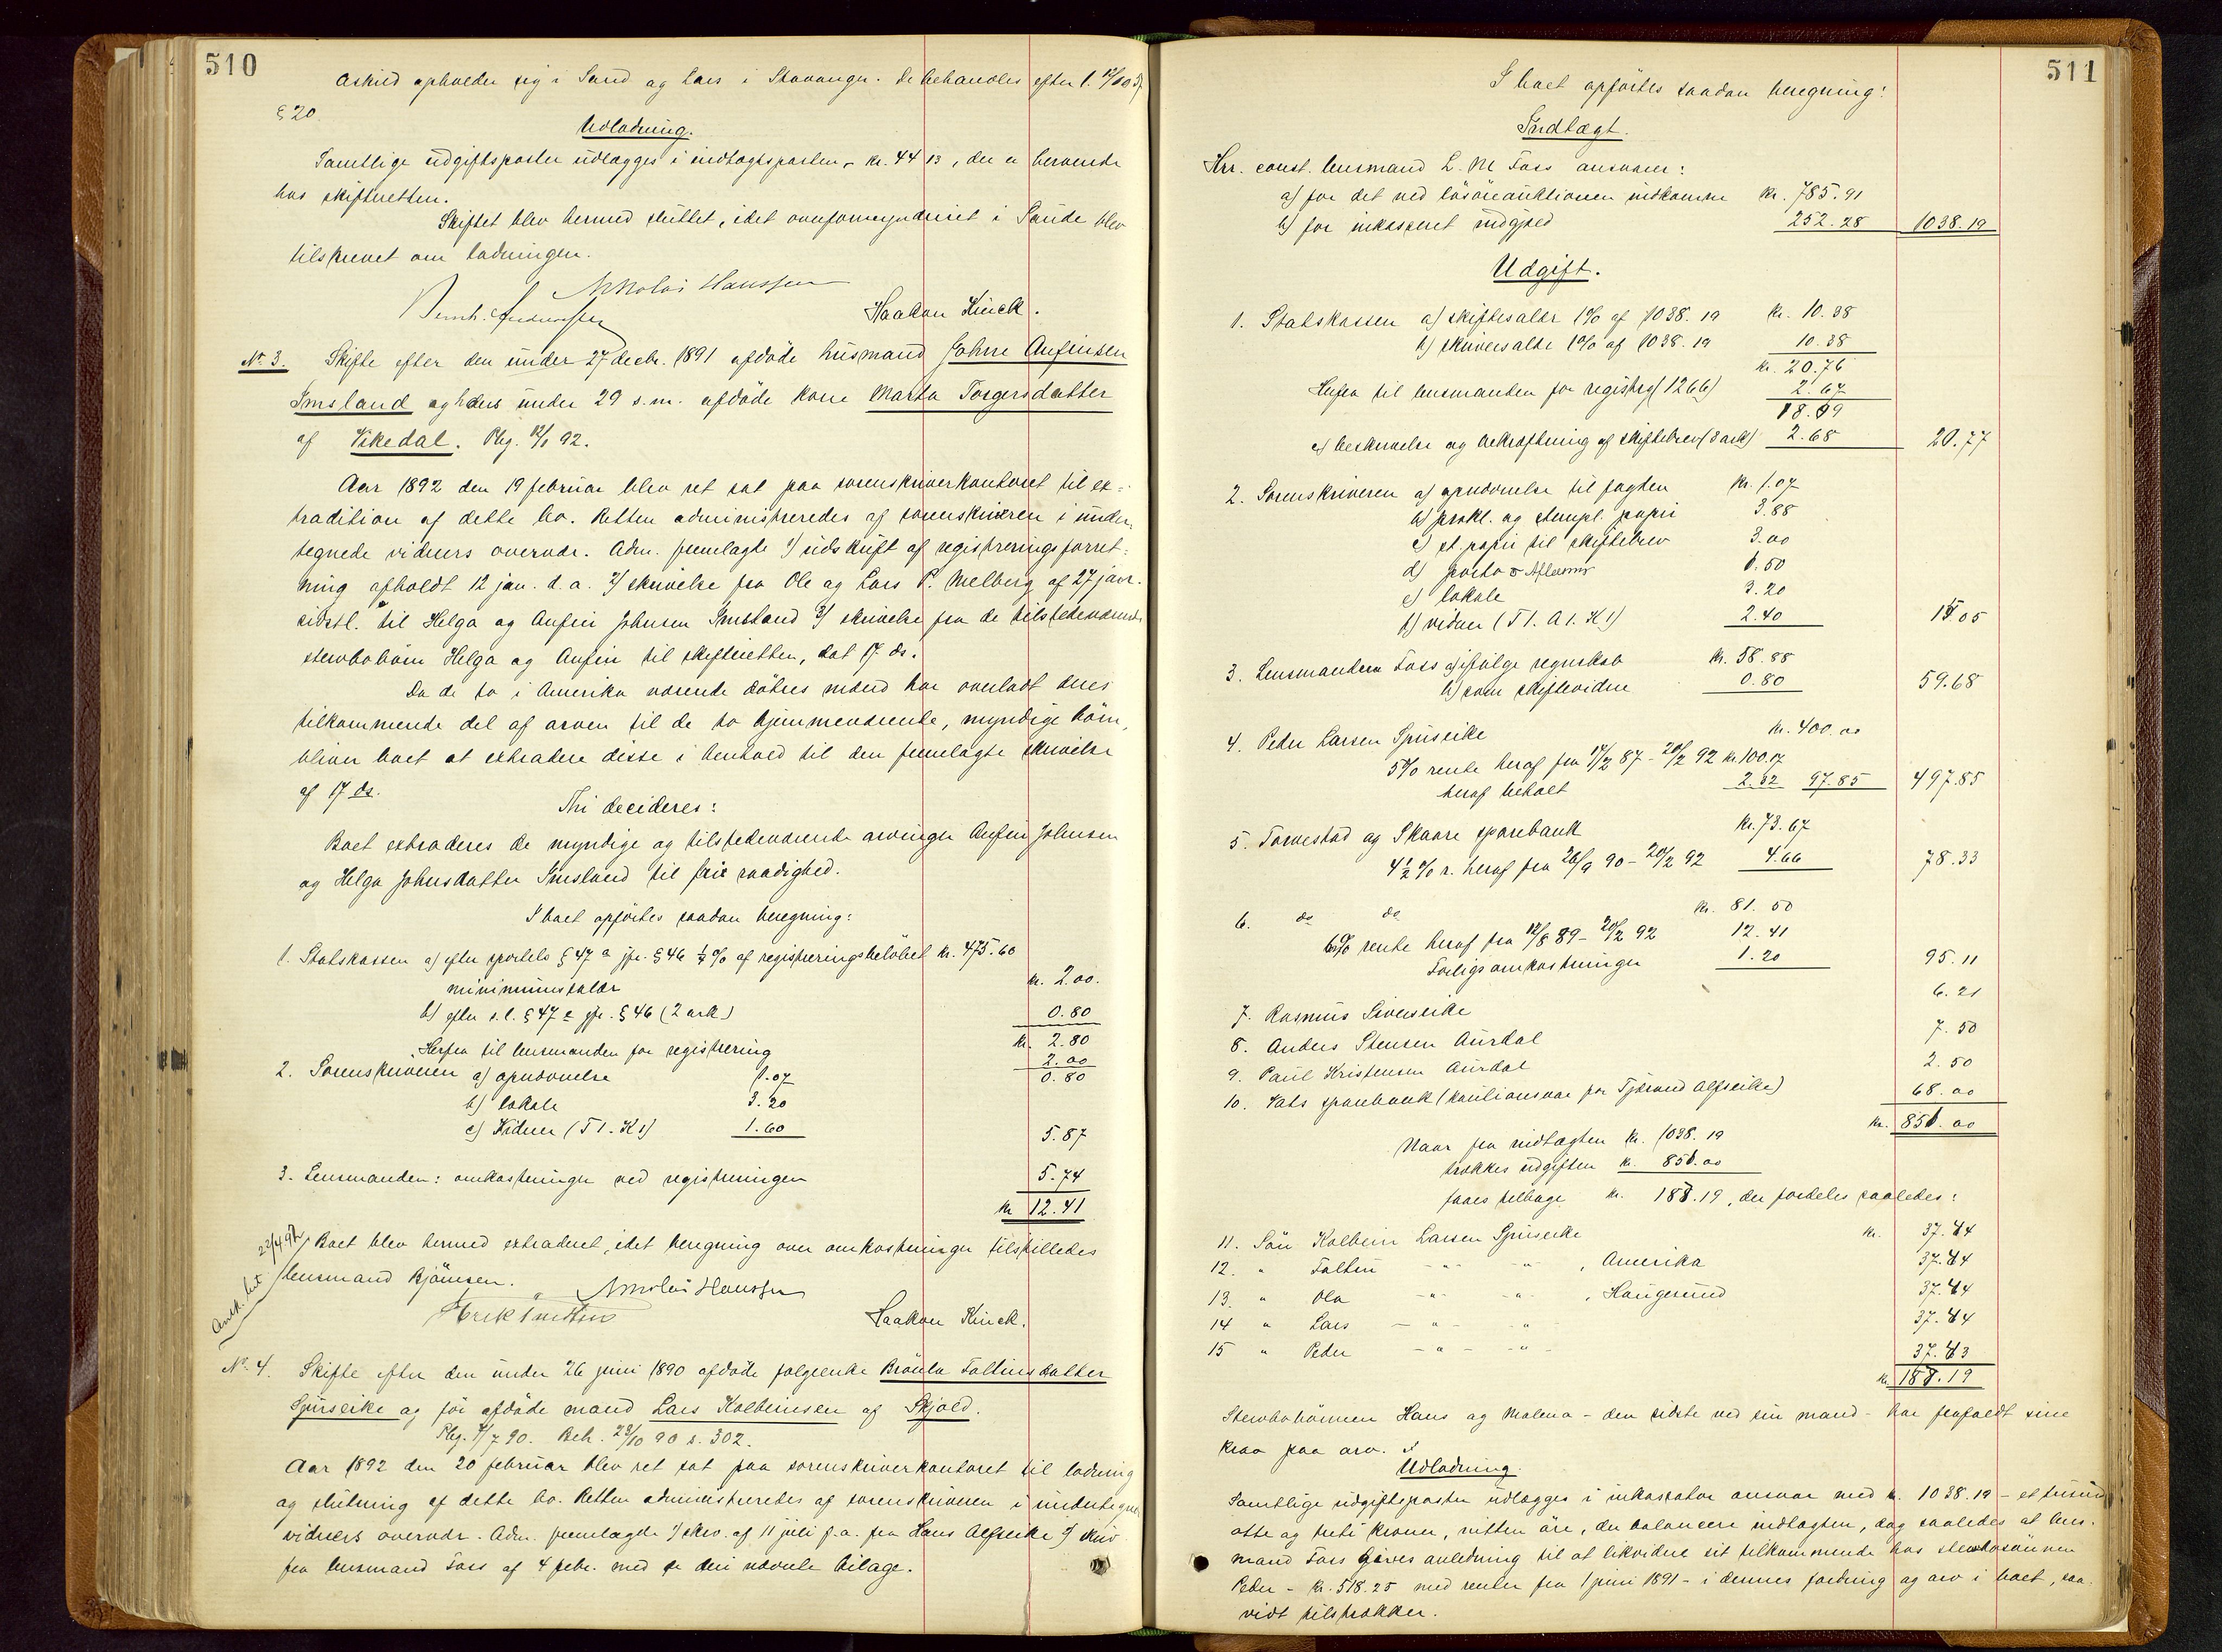 510
Astrid opholder sig i Sand og Lars i Stavanger. De behandles efter l. 12/10 05
§ 20
Udlodning.
Samtlige udgiftsposter udlægges i indtægtsposten, kr. 44 13, der er beroende
hos skifteretten.
Skiftet blev hermed sluttet, idet overformynderiet i Sande blev
tilskrevet om lodningen.
Nikolai Hanssen
Haakon Kinck.
No 3. Skifte efter den under 27 decbr. 1891 afdøde husmand Johne Anfinsen
Imsland og hans under 29 s.m. afdøde kone Marta Torgersdatter
af Vikedal. Phg. 12/1 92.
Aar 1892 den 19 februar blev ret sat paa sorenskriverkontoret til ex-
tradition af dette bo. Retten administreredes af sorenskriveren i under-
tegnede vidners overvær. Adm. fremlagde 1) udskrift af registreringsforret-
ning afholdt 12 jan. d. a. 2) skrivelse fra Ole og Lars P. Melberg af 27 janr.
sidstl. til Helga og Anfin Johnsen Imsland 3) skrivelse fra de tilstedeværende
stervbobørn Helga og Anfin til skifteretten, dat 17 ds.
Da de to i Amerika værende døtres mænd har overladt deres
tilkommende del af arven til de to hjemmeværende, myndige børn,
bliver boet at extradere disse i henhold til den fremlagte skrivelse
af 17 ds.
Thi decideres:
Boet extraderes de myndige og tilstedeværende arvinger Anfin Johnsen
og Helga Johnsdatter Imsland til fri raadighed.
I boet opførtes saadan beregning:
1. Statskassen a) efter sportelo § 47 a jfr. § 46 1/4 % af registreringsbeløbet kr. 475.60
minimumstalær kr. 2.00.
b) efter s. l. § 47 c jfr. § 46 (2 ark) 0.80
kr. 2.80
Herfra til lensmanden for registrering 2.00
0.80
2. Sorenskriveren a) opnævnelse 1.07
b) lokale 3.20
c) Vidner (T 1. K 1) 1.60 5.87
3. Lensmanden: omkostninger ved registreringen 5.74
kr 12.41
22/4 92 Boet blev hermed extraderet, idet beregning over omkostninger tilstilledes
lensmand Bjørnsen. Nikolai Hanssen
Haakon Kinck.
No. 4. Skifte efter den under 26 juni 1890 afdøde folgeenke Brønla Foltinsdatter
Spirseike og før afdøde mand Lars Kolbeinsen af Skjold.
Phg. 7/7 90. Beh. 23/10 90 s. 302.
Aar 1892 den 20 februar blev ret sat paa sorenskriverkontoret til lodning
og slutning af dette bo. Retten administreredes af sorenskriveren i undertegnede
vidners overvær. Adm. fremlagde 1) skrv. af 11 juli f.a. fra Hans Alfseike 2) skriv
fra lensmand Foss af 4 febr. med de deri nævnte bilage.
511
I boet opførtes saadan beregning:
Indtægt.
Hrr. const. lensmand L. M Foss ansvarer:
a) for det ved løsøreauktionen indkomne kr. 785.91
b) for inkasseret udgjæld 252.28 1038.19
Udgift.
1. Statskassen a) skiftesalær 1% af 1038.19 kr. 10.38
b) skriversalær 1% af 1038.19 10.38
kr. 20.76
Herfra til lensmanden for registrg (1266) 2.67
18.09
c) beskrivelse og bekræftning af skiftebrev (3 ark) 2.68 20.77
2. Sorenskriveren a) opnævnelse til fogden kr. 1.07
b) prokl. og stempl. papir 3.88
c) st. papir til skiftebrev 3.00
d) porto 1.50
e) lokale 3.20
f) vidner (T 1. A 1. K 1) 2.40 15.05
3. Lensmanden Foss a) ifølge regnskab kr. 58.88
b) som skiftevidne 0.80 59.68
4. Peder Larsen Spirseike kr. 400.00
5% rente heraf fra 17/2 87 - 20/2 92 kr. 100.17
heraf betalt 2.32 97.85 497.85
5. Torvestad og Skaare sparebank kr. 73.67
4 1/2 % r. heraf fra 26/9 90 - 20/2 92 4.66 78.33
6. do do kr. 81.50
6% rente heraf fra 12/8 89 - 20/2 92 12.41
Forligsomkostninger 1.20 95.11
7. Rasmus Siverseike 6.21
8. Anders Stensen Aurdal 7.50
9. Paul Kristensen Aurdal 2.50
10. Vats sparebank (kautionsvar for Tjærand Alfseike) 68.00
kr. 851.00
Naar fra indtægten kr. 1038.19
trækkes udgiften kr. 851.00
faaes tilbage kr. 187.19, der fordeles saaledes:
11. Søn Kolbein Larsen Spirseike kr. 37.44
12. " Foltin - " - - " - , Amerika 37.44
13. " Ola - " - - " - , Haugesund 37.44
14 " Lars - " - - " - 37.44
15 " Peder - " - - " - 37.43
kr. 187.19
Stervbobørnene Hans og Malena - den sidste ved sin mand - har frafaldt sine
krav paa arv.
Udlodning.
Samtlige udgiftsposter udlægges i inkassators ansvar med kr. 1038.19 - et tusind
otte og treti kroner, nitten øre, der balancere indtægten, dog saaledes at lens-
mand Foss gives anledning til at likvidere sit tilkommende hos stervbosønnen
Peder - kr. 518.25 med renter fra 1 juni 1891 - i dennes fordring og arv i boet, saa-
vidt tilstrækker.